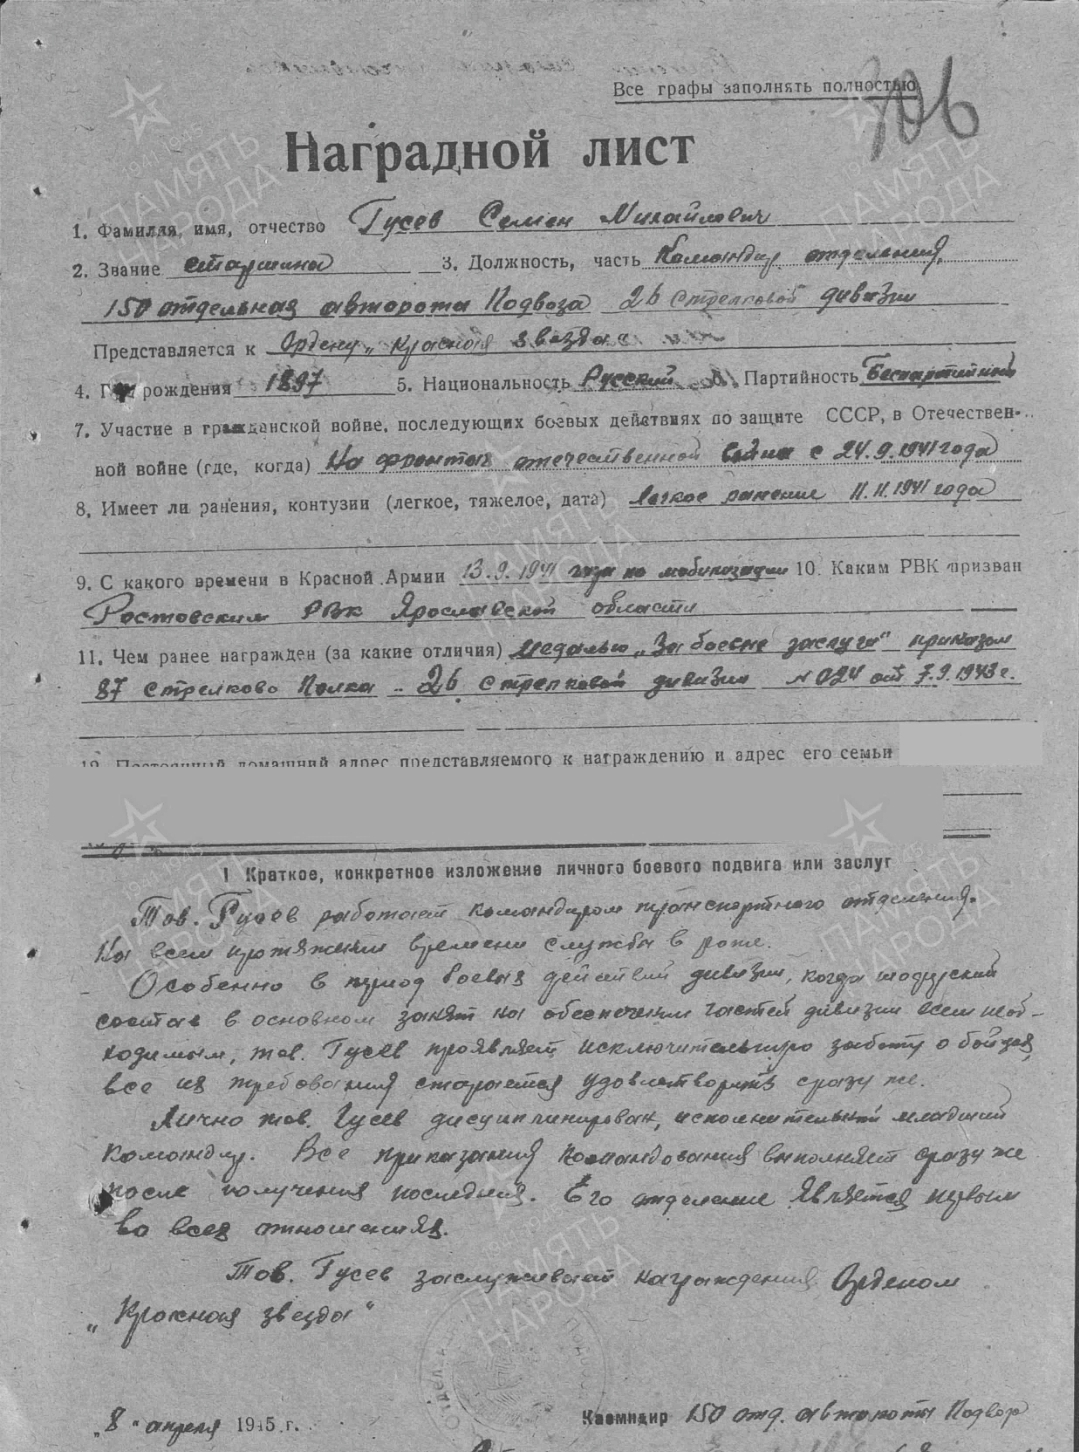 Все графы заполнять полностью
106
Наградной лист
1. Фамилия, имя, отчество Гусев Семен Михайлович
2. Звание старшина 3. Должность, часть Командир отделения,
150 отдельная авторота Подвоза 26 стрелковой дивизии
Представляется к Ордену „Красная звезда"
4. Год рождения 1897 5. Национальность Русский 6. Партийность Беспартийный
7. Участие в гражданской войне, последующих боевых действиях по защите СССР, в Отечествен-
ной войне (где, когда) На фронтах отечественной войны с 24.9.1941 года
8. Имеет ли ранения, контузии (легкое, тяжелое, дата) Легкое ранение 11.11.1941 года
9. С какого времени в Красной Армии 13.9.1941 года по мобилизации 10. Каким РВК призван
Ростовским РВК Ярославской области
11. Чем ранее награжден (за какие отличия) Медалью „За боевые заслуги" приказом
87 Стрелкового Полка 26 стрелковой дивизии № 024 от 7.9.1943 г.
12. Постоянный домашний адрес представляемого к награждению и адрес его семьи
I Краткое, конкретное изложение личного боевого подвига или заслуг
Тов. Гусев работает командиром транспортного отделения.
На всем протяжении времени службы в роте.
Особенно в период боевых действий дивизии, когда
состав в основном занят на обеспечении частей дивизии всем необ-
ходимым, тов. Гусев проявляет исключительную заботу о бойцах,
все их требования старается удовлетворить сразу же.
Лично тов. Гусев дисциплинирован, исполнительный младший
командир. Все приказания командования выполняет сразу же
после получения последних. Его отделение является первым
во всех отношениях.
Тов. Гусев заслуживает награждения Орденом
„Красная звезда"
„8" апреля 1945 г. Командир 150 отд. автороты Подвоза
ПАМЯТЬ НАРОДА